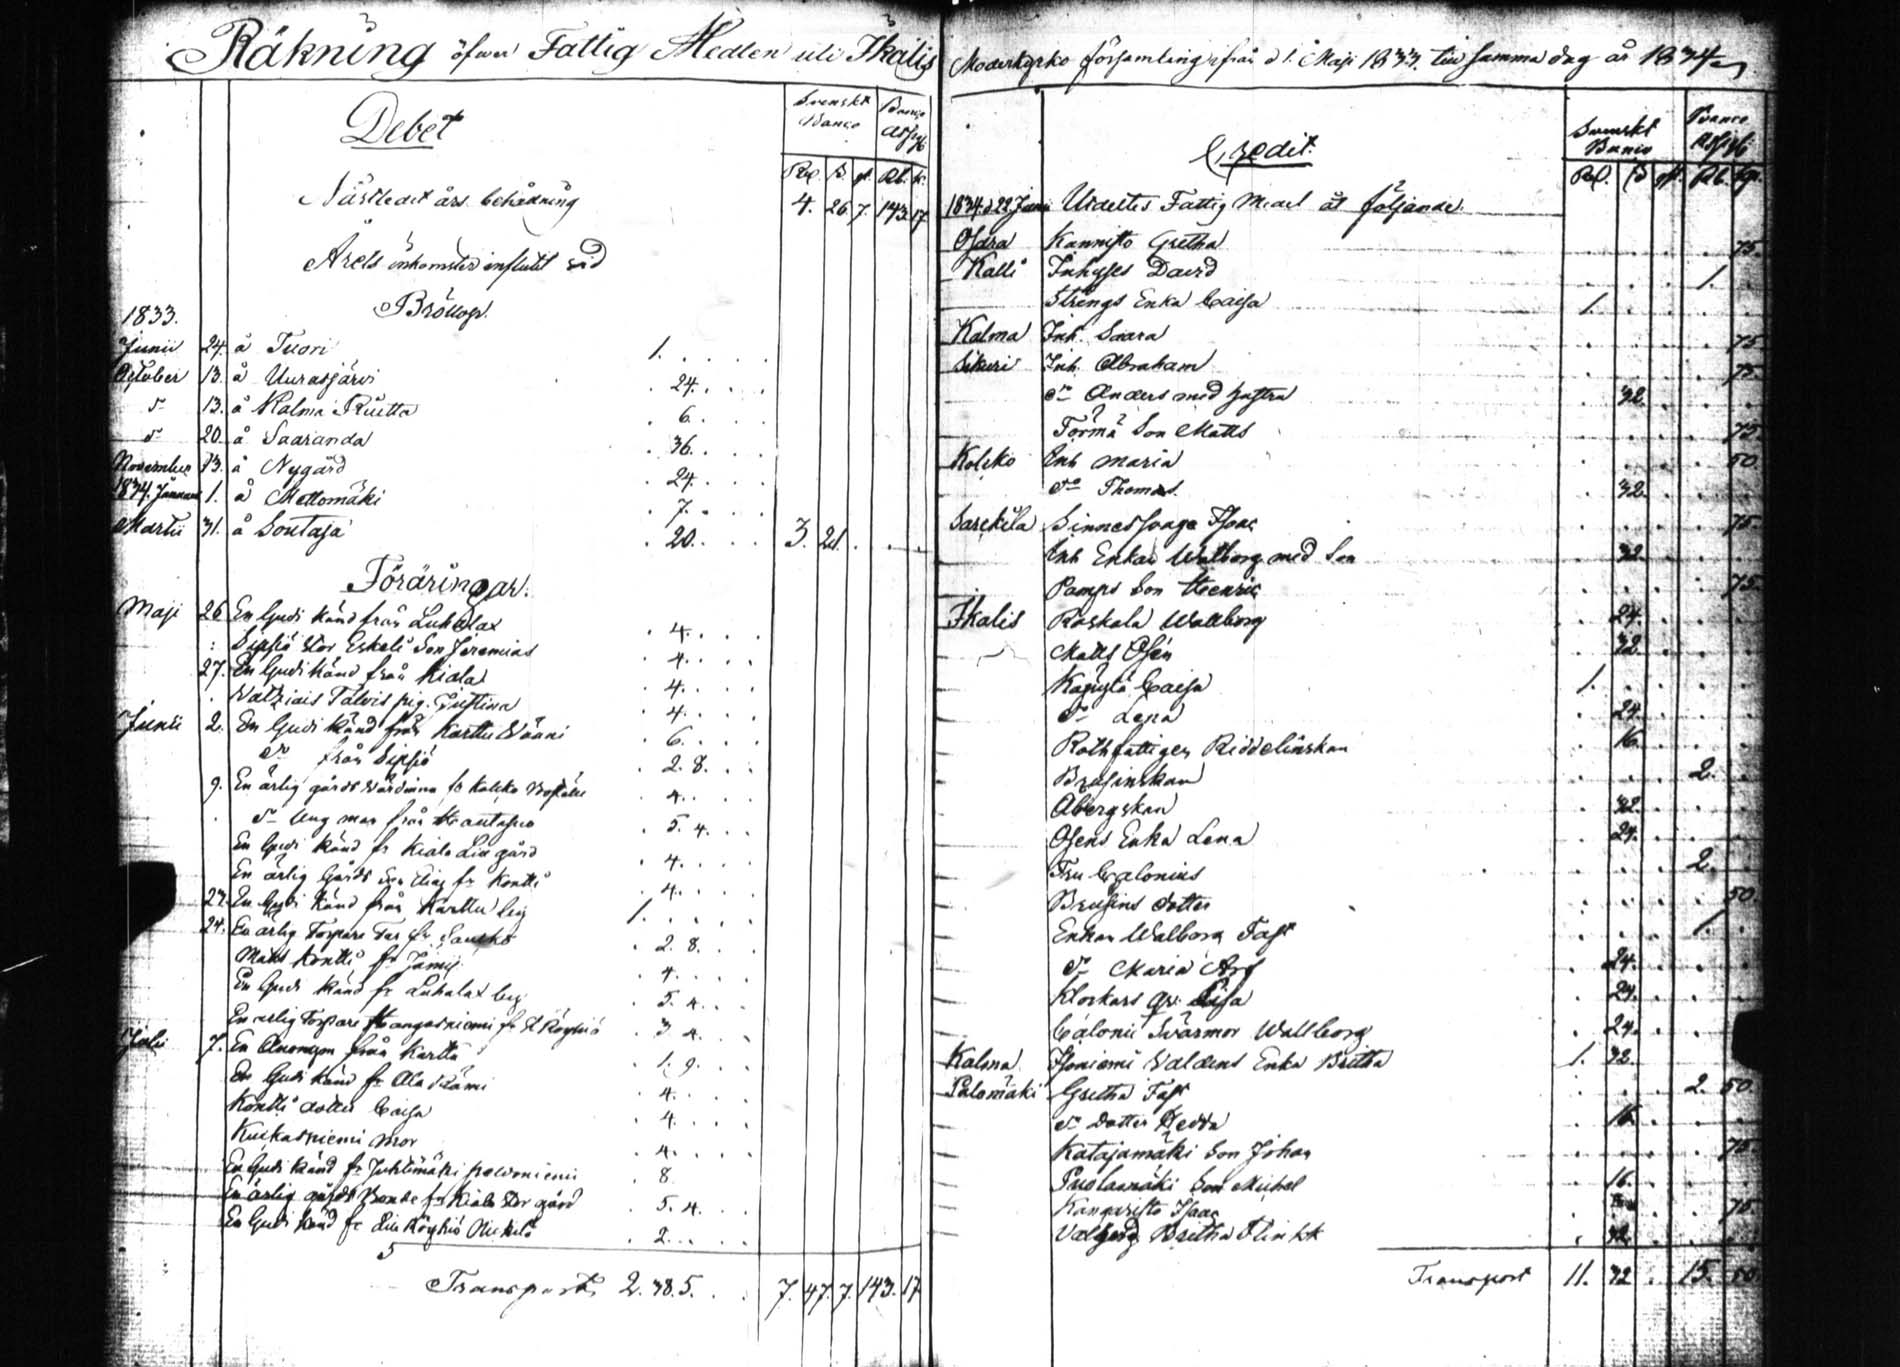 Räkning öfwer Fattig Medlen uti Ikalis
Debet
Svenskt Banco
Banco
Rd. ß. rst. Rb. k.
Nästledit års behådning 4. 26. 7. 143. 17.
Årets inkomster influtit vid
Bröllop.
1833.
Junii 24. å Tuori 1. . . .
October 13. å Uurasjärvi . 24. . .
d:o 13. å Kalma Riutta . 6. . .
d:o 20. å Saaranda . 36. . .
November 13. å Nygård . 24. . .
1834. Januarii 1. å Mettomäki . 7. . .
Martii 31. å Soutaja . 20. . . 3. 21. . . .
Föräringar.
Maji 26 En Gudi känd från Luhalax . 4. . .
Sipsiö Stor Eskeli Son Jeremias . 4. . .
27. En Gudi känd från Kiala . 4. . .
pig. Gustina . 4. . .
Junii 2. En Gudi känd från Karttu . 6. . .
d:o från Sipsiö . 2. 8. . .
9. En ärlig gårds Värdinna fr. . 4. . .
d:o Ung man från . 5. 4. . .
En Gudi känd fr Kiala Lill gård . 4. . .
En ärlig Gårds fr Kontti . 4. . .
En Gudi känd från Karttu by 1. . . .
24. En ärlig Torpare fr. . 2. 8. . .
Matts Kontti fr Jämij . 4. . .
En Gudi känd fr Luhalax by . 5. 4. . .
En ärlig Torpare fr . 3 4. . .
Julii 7. En Anonym från Karttu . 1. 9. . .
En Gudi känd fr Ala Skämi . 4. . .
Kontti dotter Caisa . 4. . .
Kurkasniemi mor . 4. . .
En Gudi känd fr . 8
En ärlig gårds Bonde fr Kiala Stor gård . 5. 4. . .
En Gudi känd fr Röyhiö . 2. . .
Transport 2. 38. 5. . . 7. 47. 7. 143. 17
Moderkyrko församling ifrån d 1. Maji 1833. till samma dag år 1834
Credit.
Svenskt Banco
Banco
Rd. ß rst. Rb. kp.
1834. d 22 Junii Utdeltes Fattig Medel åt följande.
Osara Kannisto Gretha . . . . 75.
Kalli Inhyses David . . . 1. .
Strångs Enka Caisa 1. . . . .
Kalma Inh. Saara . . . . 75
Sikuri Inh. Abraham . . . . 75.
d:o Anders med hustru . 32. . . .
Törmä Son Matts . . . . 75.
Kolkko Inh Maria . . . . 50
d:o Thomas. . 32. . . .
Sarkkila Sinnessvage Isaac . . . . 75.
Inh Enkan Walborg med Son . 32. . . .
Pamps Son Henric . . . . 75.
Ikalis Raskala Wallborg . 24. . . .
Matts Osén . 32. . . .
Käpylä Caisa 1. . . . .
d:o Lena . 24. . . .
Rothfattigen Riddelinskan . 16. . . .
Brusinskan . . . 2. .
Åbergskan . 32. . . .
Osens Enka Lena . 24. . . .
Fru Calonius . . . 2. .
Brusins dotter . . . . 50.
Enkan Walborg Fast . . . 1. .
d:o Maria . 24. . . .
Klockars Caisa . 24. . . .
Calonii Svärmor Wallborg . 24. . . .
Kalma Isoniemi Valdens Enka Britha 1. 32. . . .
Palomäki Gretha Fast . . . 2. 50
d:o Dotter Hedda . 16. . . .
Katajamäki Son Johan . . . . 75.
Puolamäki Son Michel . 16. . . .
Kangaristo Isaac . . . . 75.
Britha Flinkk . 32. . . .
Transport 11. 32 . 15. 50